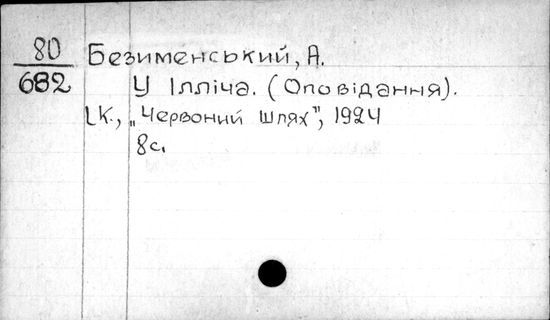 80
682
Безименський, А.
У Ілліча. (Оповідання).
[К., „Червоний шлях", 1924
8с.